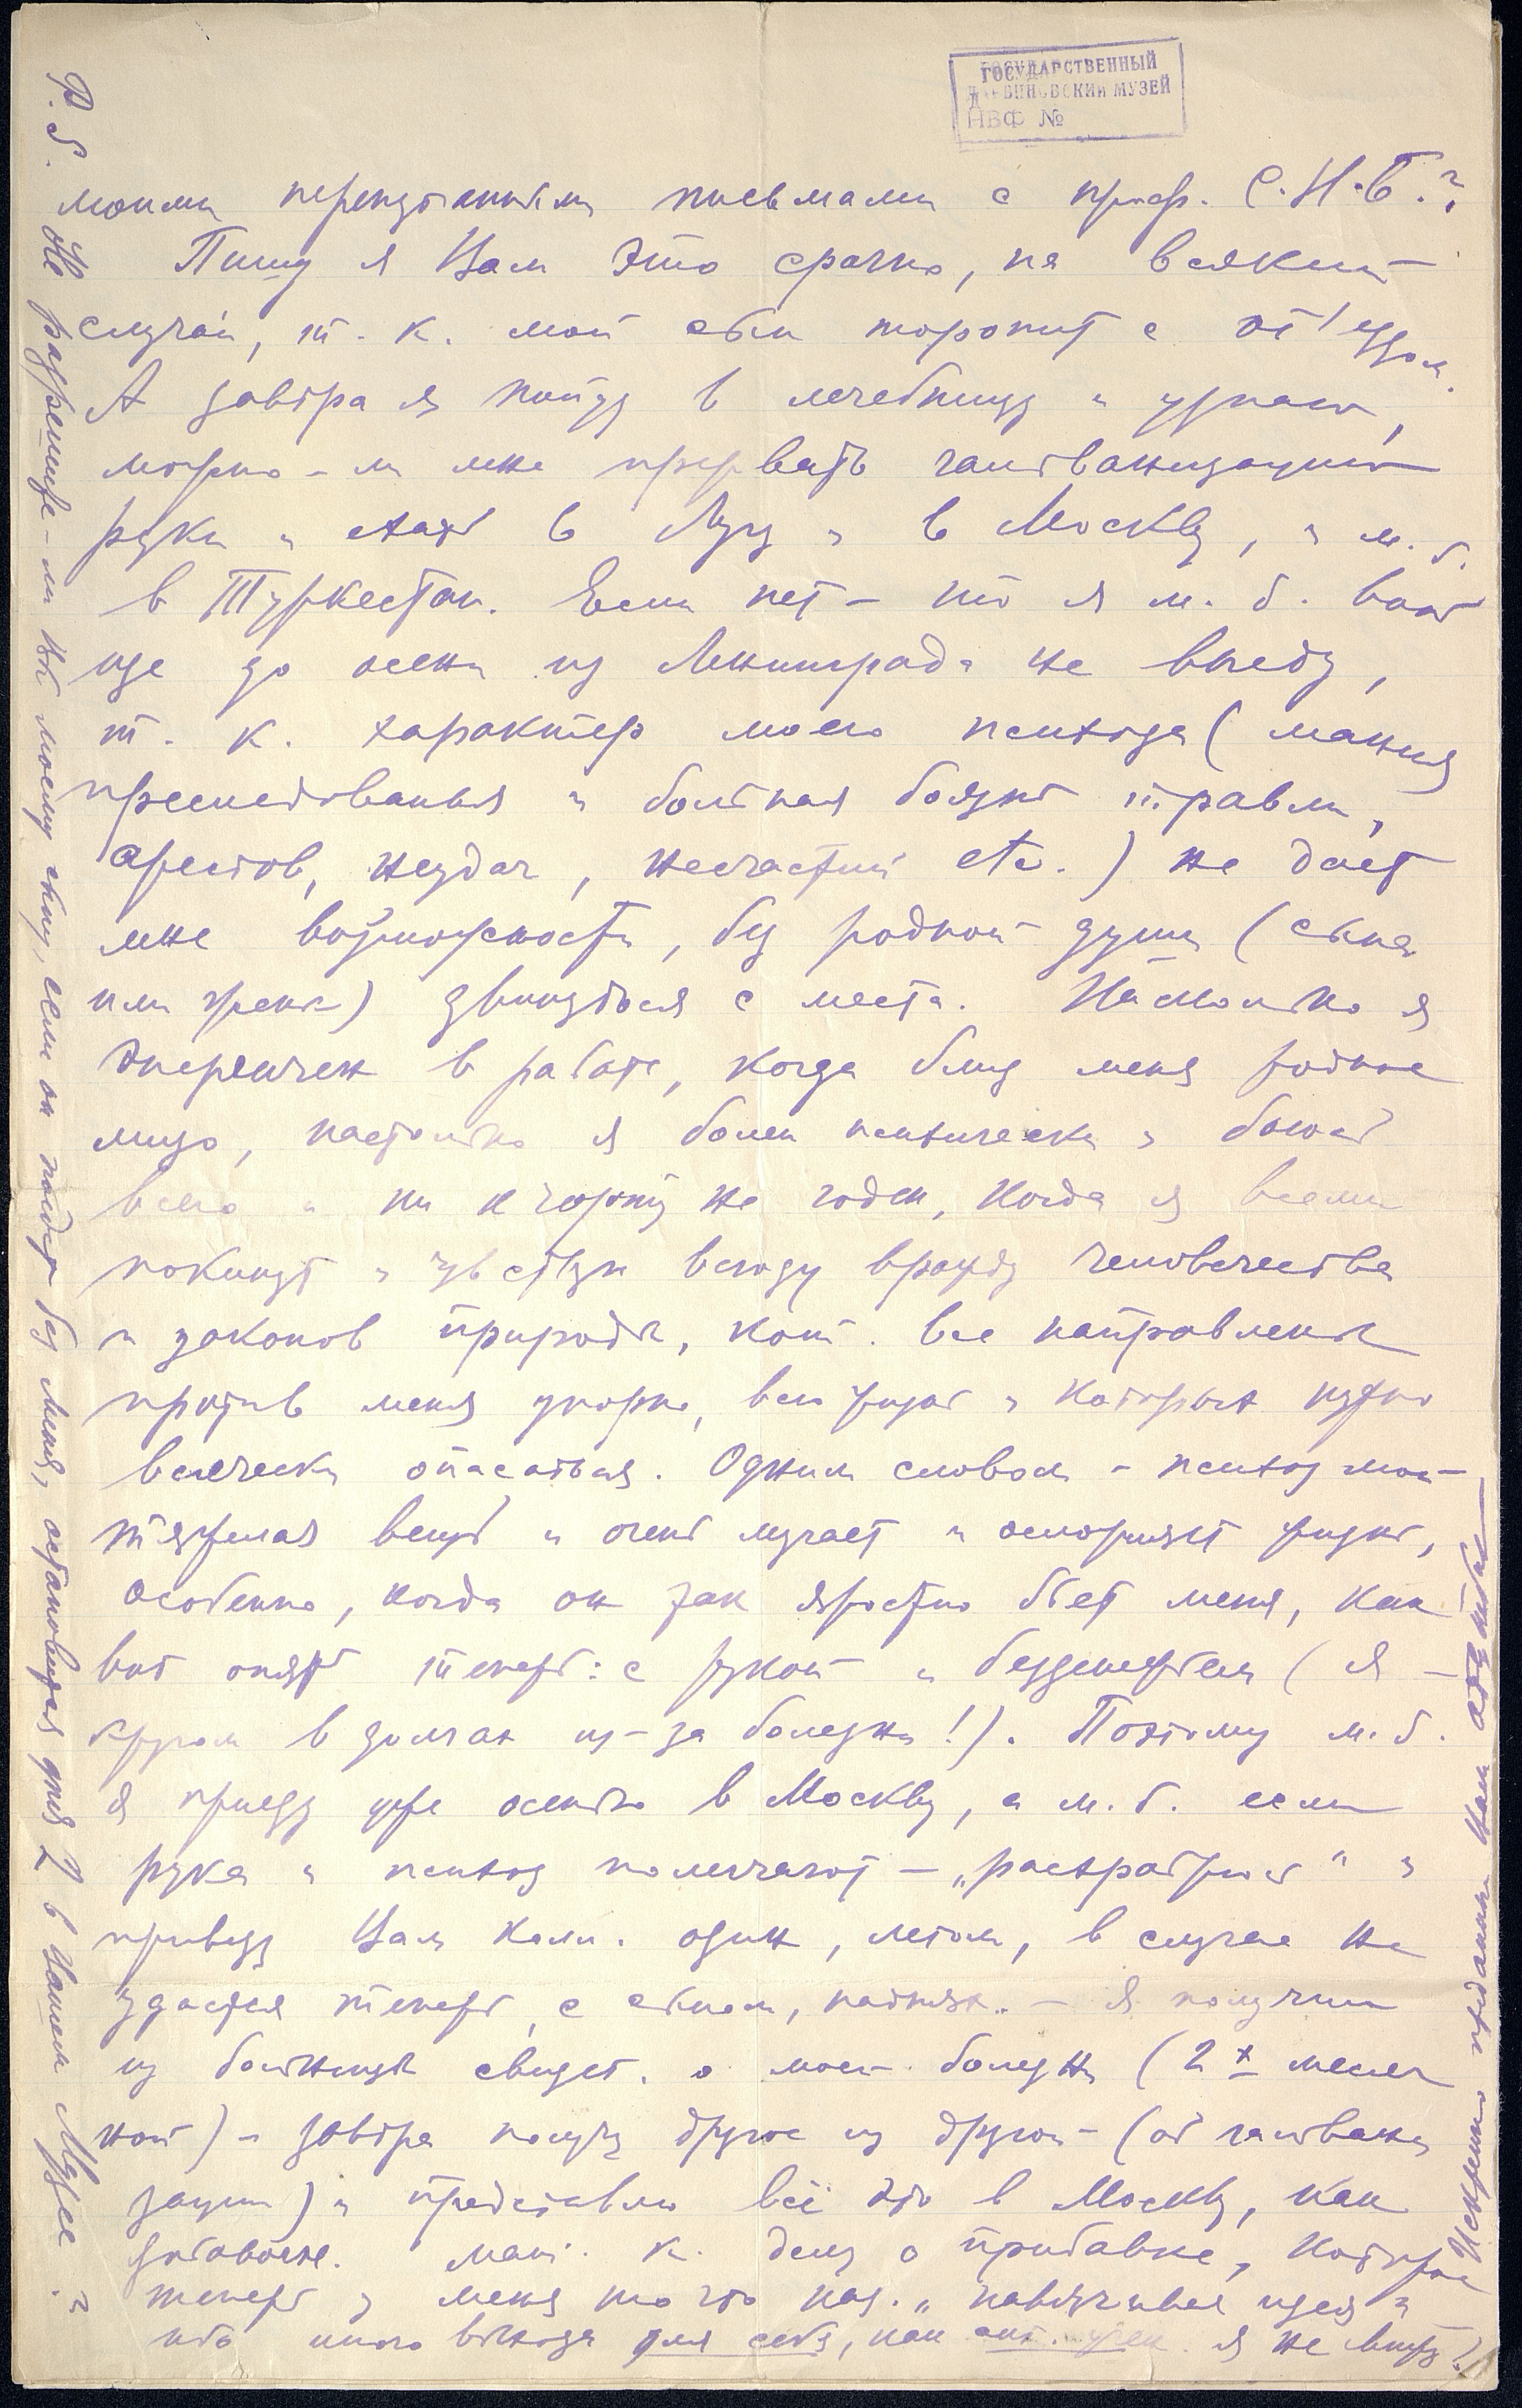 ГОСУДАРСТВЕННЫЙ
ДАРВИНОВСКИЙ МУЗЕЙ
НВФ №
моими перепутанными письмами с проф. С.Н.Б.?
Пишу я Вам это срочно, на всякий
случай, т. к. мой сын торопит с отъездом.
А завтра я пойду в лечебницу и узнаю,
можно-ли мне прервать гальванизацию
руки и ехать в Лугу и в Москву, и м. б.
в Туркестан. Если нет – то я м. б. вооб
ще до осени из Ленинграда не выеду,
т. к. характер моего психоза (мания
преследованья и больная боязнь травли,
арестов, неудач, несчастий etc.) не дает
мне возможности, без родной души (сына
или жены) двинуться с места. Насколько я
энергичен в работе, когда близ меня родное
лицо, настолько я болен психически и боюсь
всего и ни к чорту не годен, когда я всеми
покинут и чувствую всюду вражду человечества
и законов природы, кот. все направлены
против меня упорно, всю жизнь и которых нужно
всячески опасаться. Одним словом – психоз мой –
тяжелая вещь и очень мучает и осложняет жизнь,
особенно, когда он так яростно бьет меня, как
вот опять теперь: с рукой и безденежьем (я –
кругом в долгах из-за болезни!). Поэтому м. б.
я приеду уже осенью в Москву, а м. б. если
рука и психоз полегчают – „расхрабрюсь" и
привезу Вам колл. один, летом, в случае не
удастся теперь, с сыном, – я получил
из больницы свидет. о моей болезни (2х месяч
ной) – завтра получу другое из другой – (от гальвани
зации) и представлю всё это в Москву, как
добавочн. мат. к делу о прибавке, которое
теперь у меня то что наз. „навязчивая идея"
ибо иного выхода для себя, как я не вижу!
P.S. Не разрешите-ли Вы моему сыну, если он поедет без меня, остановиться дня 2 в Вашем Музее?
Искренно преданный Вам